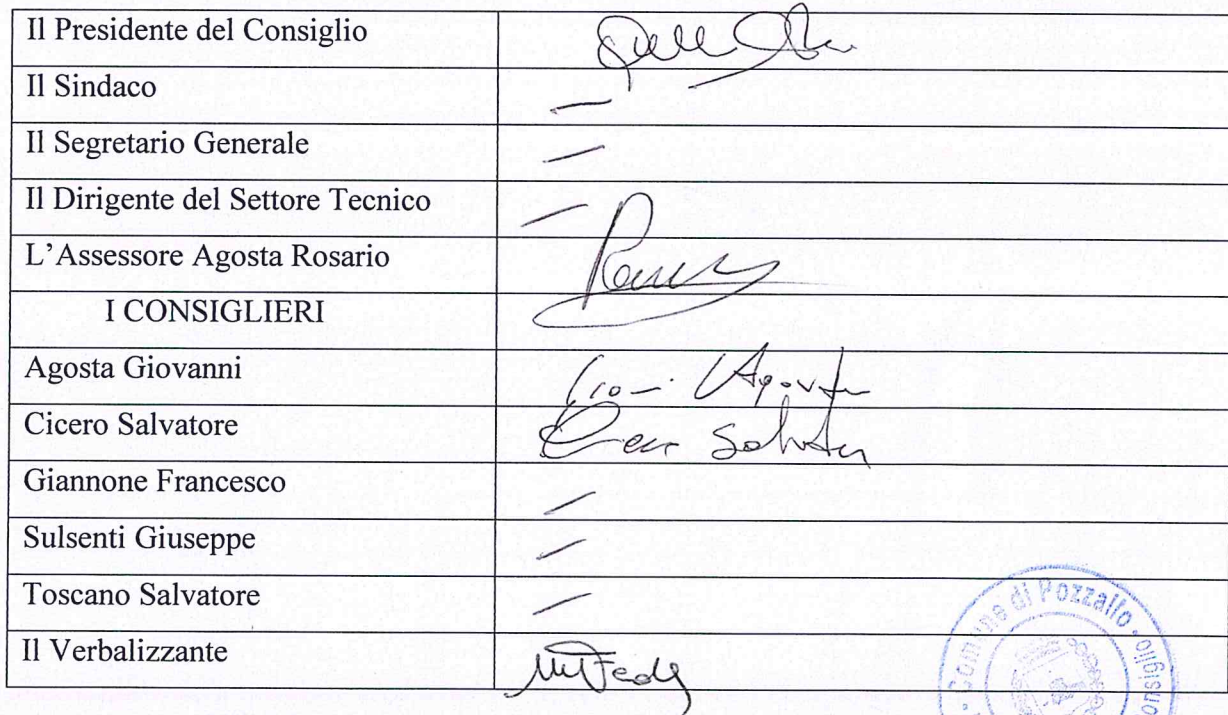 Il Presidente del Consiglio
Il Sindaco —
Il Segretario Generale —
Il Dirigente del Settore Tecnico —
L'Assessore Agosta Rosario
I CONSIGLIERI
Agosta Giovanni Agosta
Cicero Salvatore
Giannone Francesco —
Sulsenti Giuseppe —
Toscano Salvatore —
Il Verbalizzante
Comune di Pozzallo